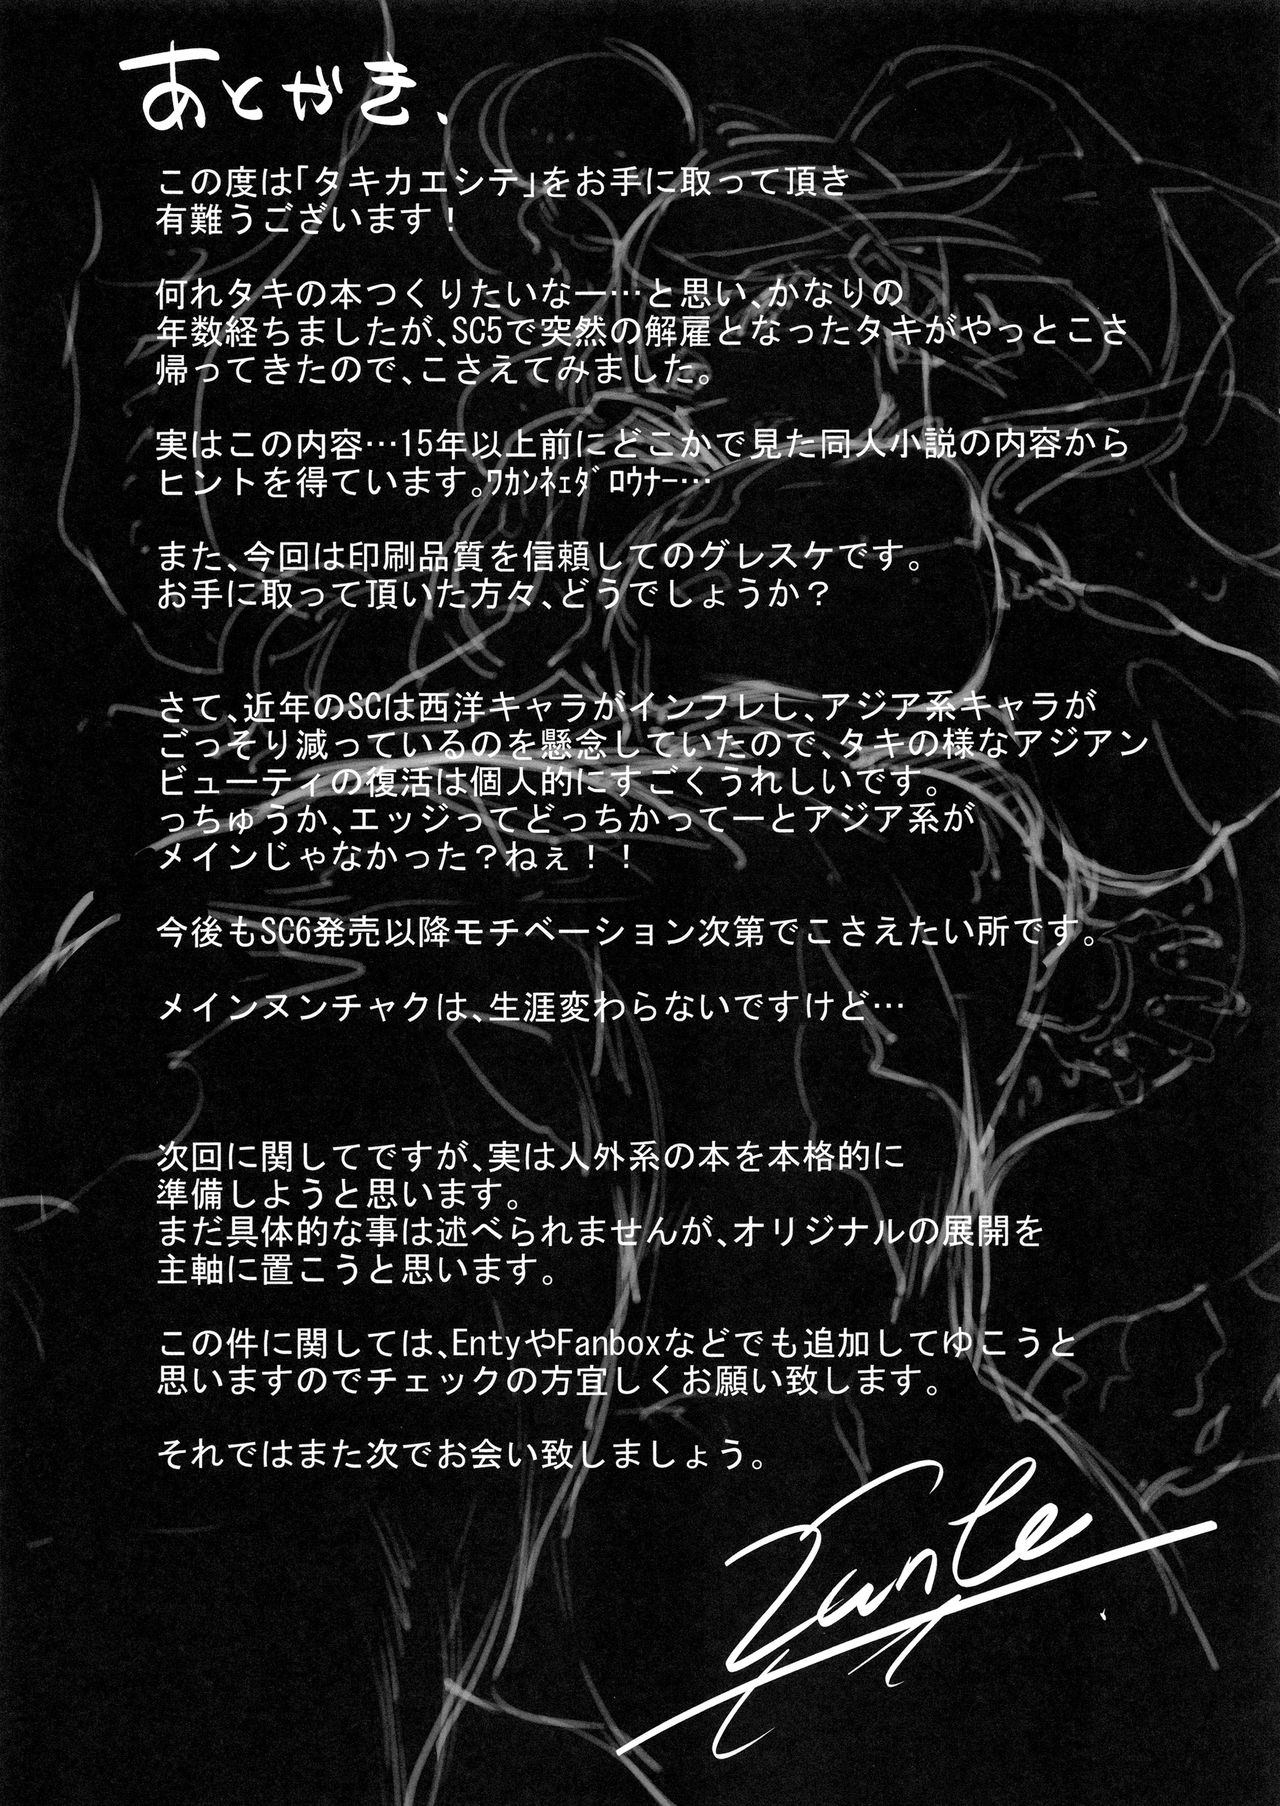 あとがき、
この度は「タキカエシテ」をお手に取って頂き
有難うございます！
何れタキの本つくりたいなー…と思い、かなりの
年数経ちましたが、SC5で突然の解雇となったタキがやっとこさ
帰ってきたので、こさえてみました。
実はこの内容…15年以上前にどこかで見た同人小説の内容から
ヒントを得ています。ﾜｶﾝﾈｪﾀﾞﾛｳﾅｰ…
また、今回は印刷品質を信頼してのグレスケです。
お手に取って頂いた方々、どうでしょうか？
さて、近年のSCは西洋キャラがインフレし、アジア系キャラが
ごっそり減っているのを懸念していたので、タキの様なアジアン
ビューティの復活は個人的にすごくうれしいです。
っちゅうか、エッジってどっちかってーとアジア系が
メインじゃなかった？ねぇ！！
今後もSC6発売以降モチベーション次第でこさえたい所です。
メインヌンチャクは、生涯変わらないですけど…
次回に関してですが、実は人外系の本を本格的に
準備しようと思います。
まだ具体的な事は述べられませんが、オリジナルの展開を
主軸に置こうと思います。
この件に関しては、EntyやFanboxなどでも追加してゆこうと
思いますのでチェックの方宜しくお願い致します。
それではまた次でお会い致しましょう。